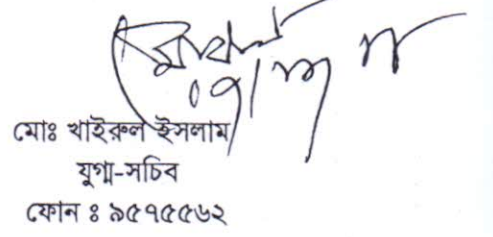 মোঃ খাইরুল ইসলাম
যুগ্ম-সচিব
ফোন ঃ ৯৫৭৫৫৬২